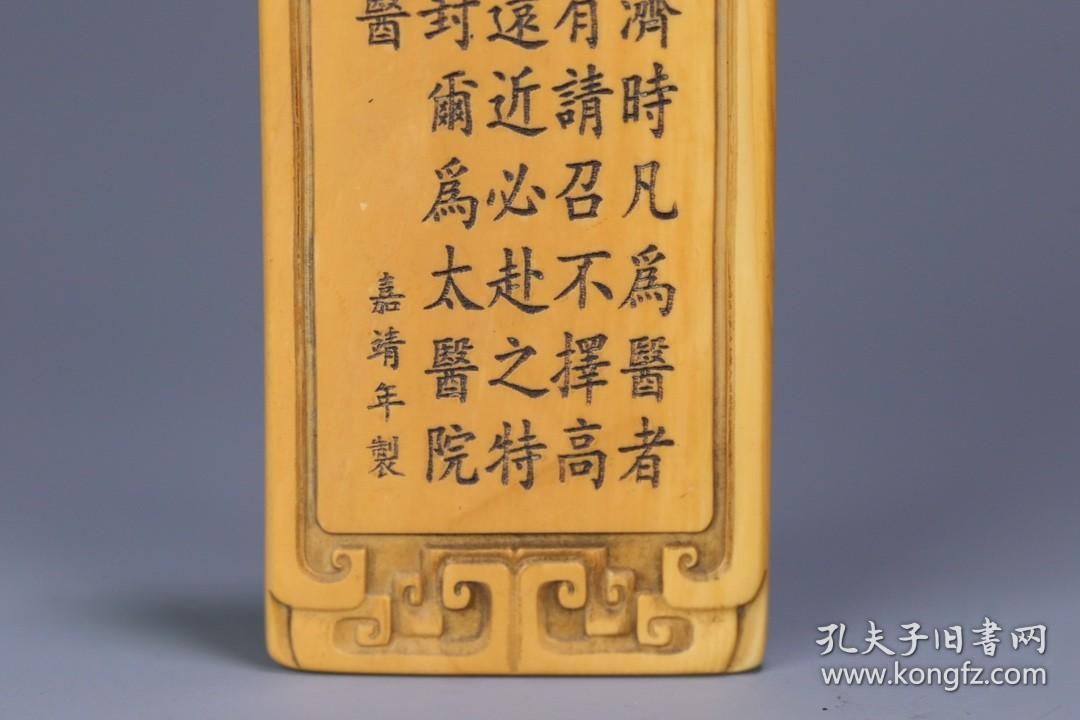 濟時凡爲醫者
有請召不擇高
遠近必赴之特
封爾爲太醫院
醫
嘉靖年製
孔夫子旧书网
www.kongfz.com